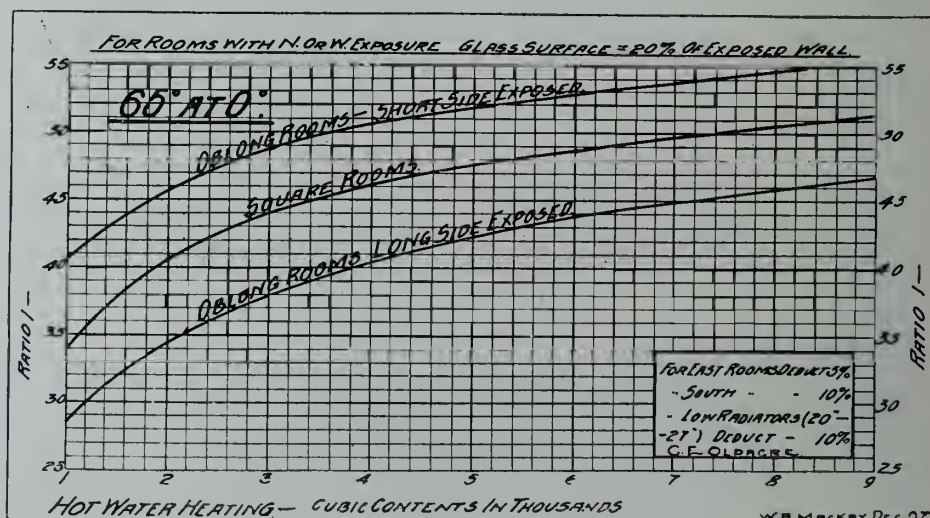 FOR ROOMS WITH N. OR W. EXPOSURE GLASS SURFACE = 20% OF EXPOSED WALL.
55 55
65° AT 0°.
OBLONG ROOMS - SHORT SIDE EXPOSED.
50 50
SQUARE ROOMS.
45 45
OBLONG ROOMS LONG SIDE EXPOSED
40 40
RATIO 1- RATIO 1-
35 35
FOR EAST ROOMS DEDUCT 5%
" SOUTH " " 10%
" LOW RADIATORS (20"-
-27") DEDUCT - 10%
C.F. OLDACRE.
30 30
25 25
1 .2 .3 .4 5 6 7 .8 9
HOT WATER HEATING - CUBIC CONTENTS IN THOUSANDS
W.B. MACKAY DEC. 07